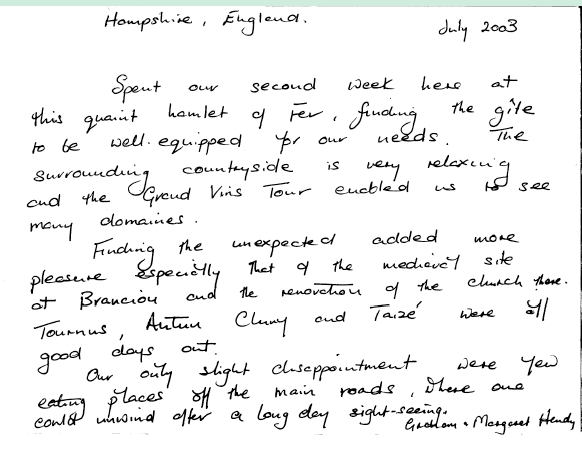 Hampshire, England. July 2003
Spent our second week here at
this quaint hamlet of Fer, finding the gîte
to be well-equipped for our needs. The
surrounding countryside is very relaxing
and the Grand Vins Tour enabled us to see
many domaines.
Finding the unexpected added more
pleasure especially that of the medieval site
at Brancion and the renovation of the church there.
Tournus, Autun Cluny and Taizé were all
good days out.
Our only slight disappointment were few
eating places off the main roads, where one
could unwind after a long day sight-seeing.
Graham & Margaret Hendy